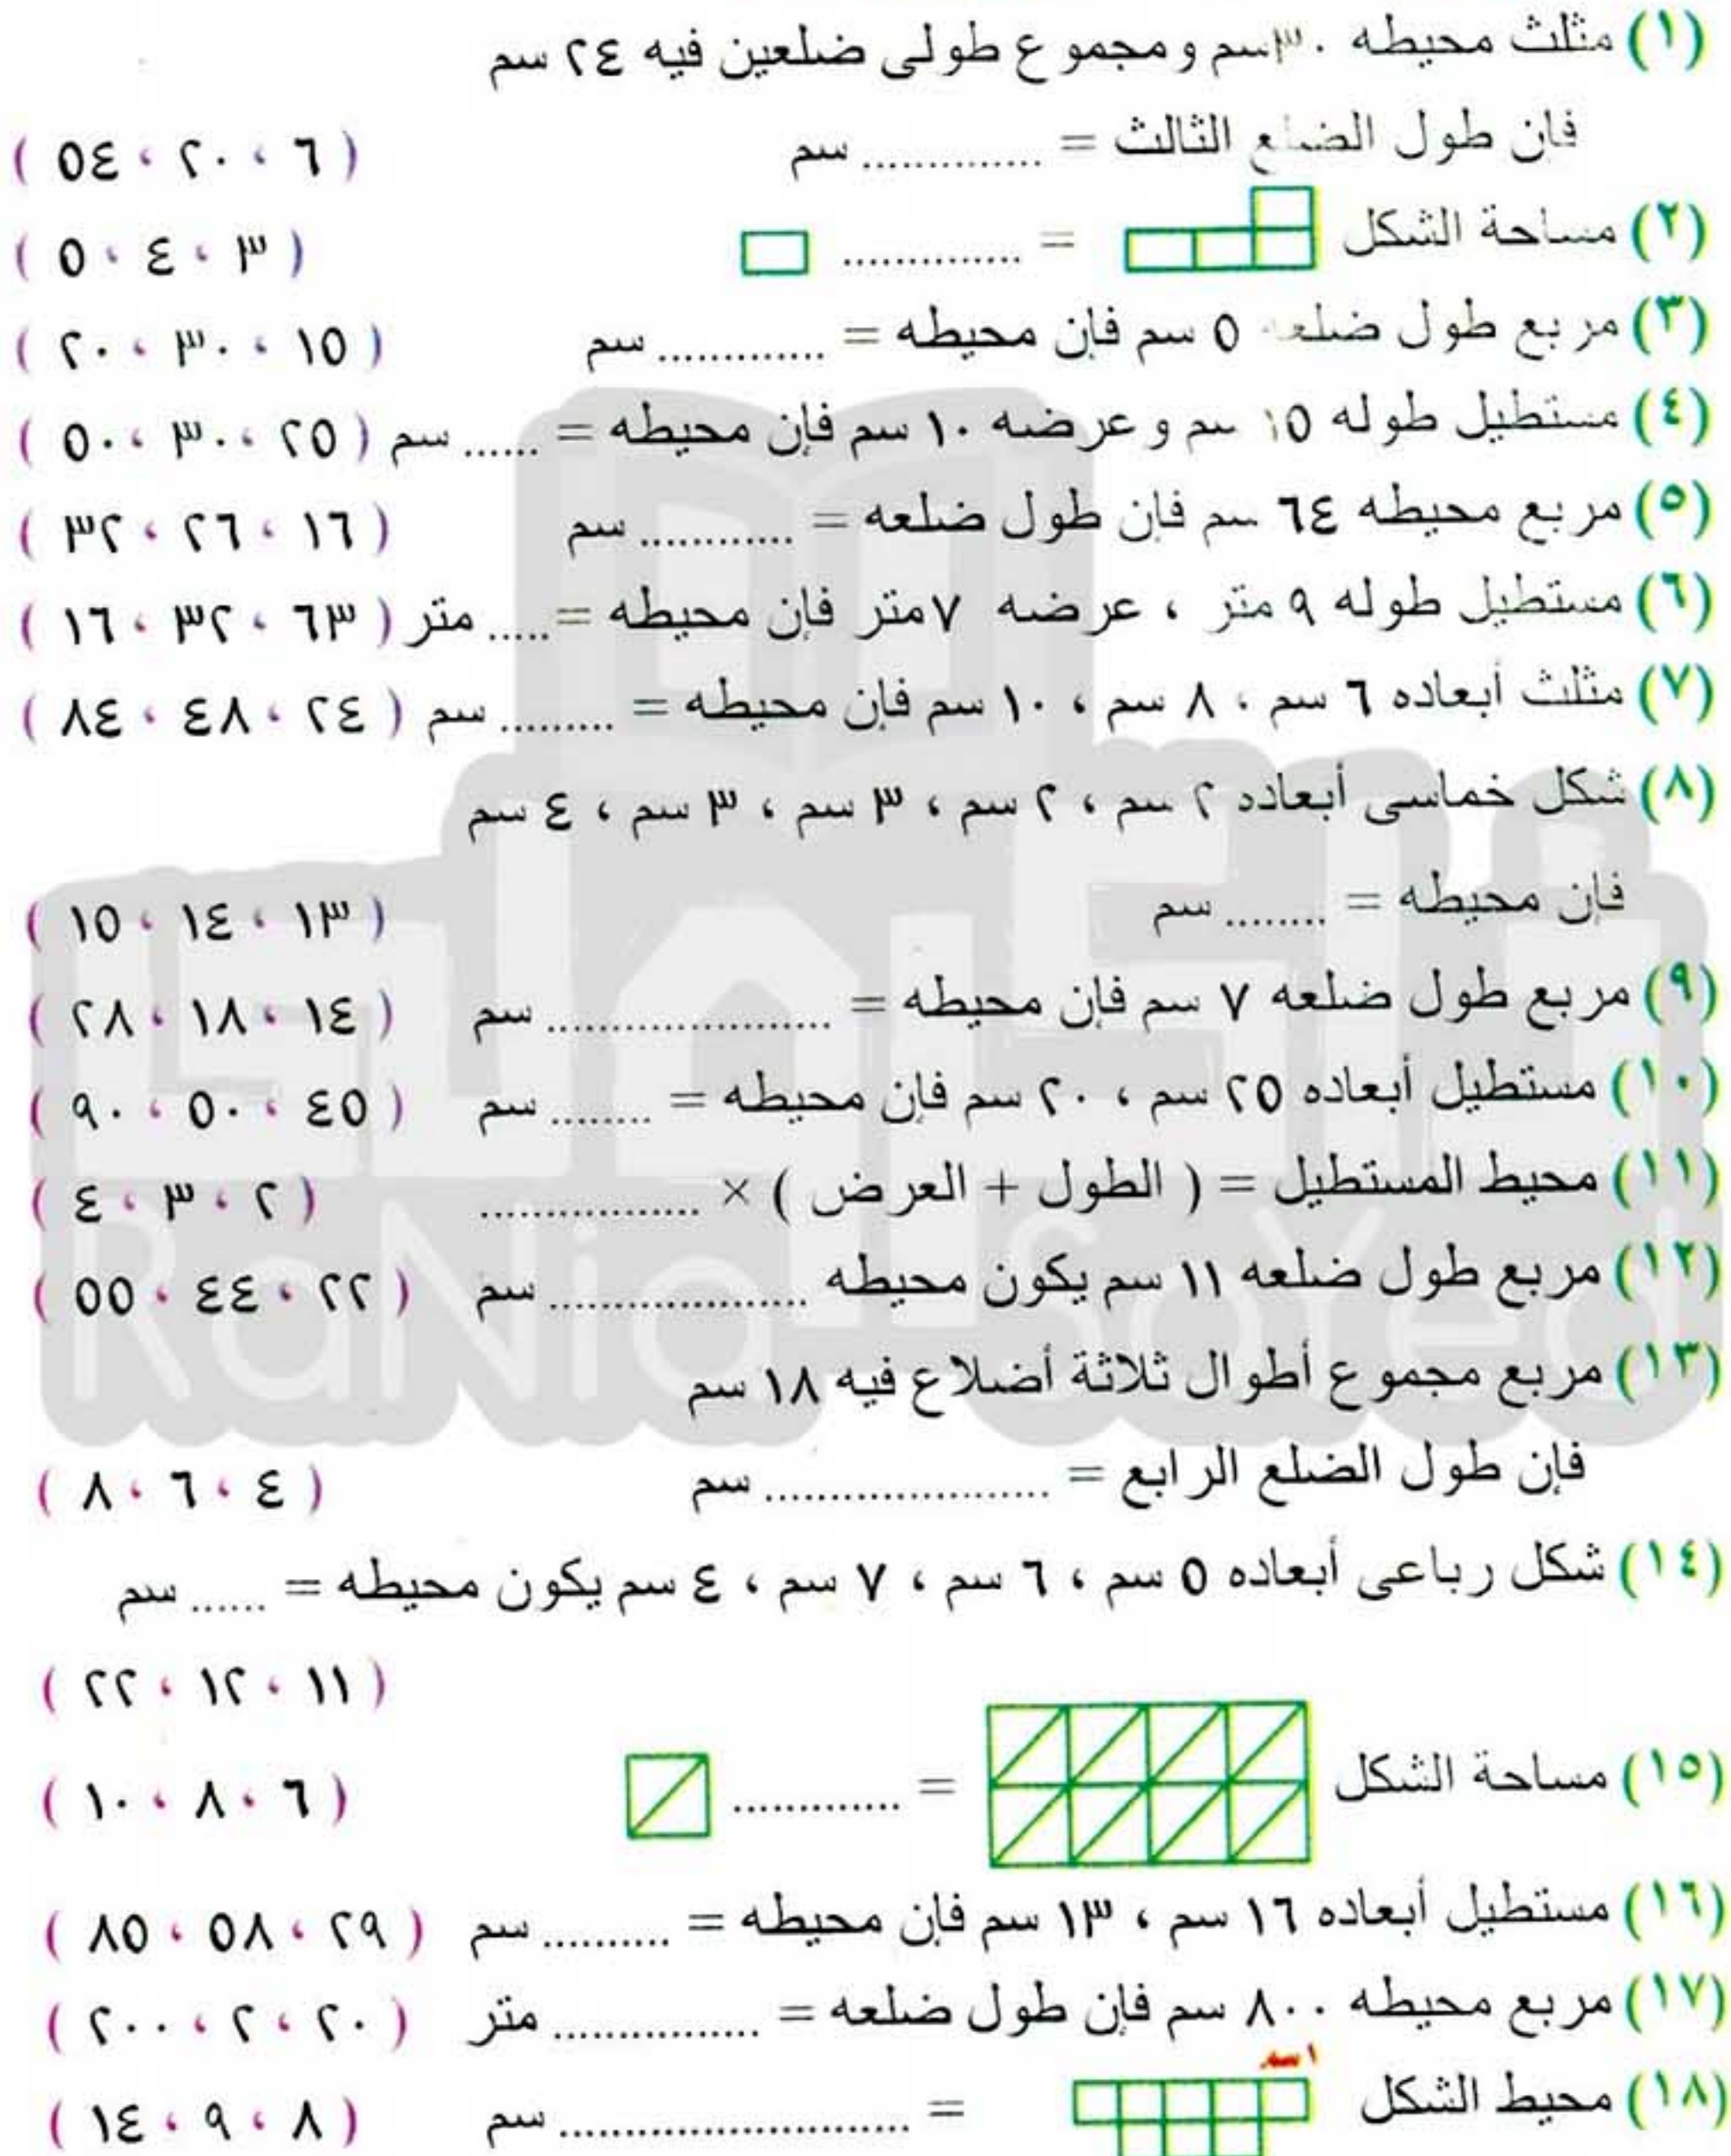 (١) مثلث محيطه ٣٠ سم و مجموع طولى ضلعين فيه ٢٤ سم
فان طول الضلع الثالث = .............. سم ( ٦ ، ٢٠ ، ٥٤ )
(٢) مساحة الشكل = .............. ( ٣ ، ٤ ، ٥ )
(٣) مربع طول ضلعه ٥ سم فإن محيطه = ............. سم ( ١٥ ، ٣٠ ، ٢٠ )
(٤) مستطيل طوله ١٥ سم و عرضه ١٠ سم فإن محيطه = ...... سم ( ٢٥ ، ٣٠ ، ٥٠ )
(٥) مربع محيطه ٦٤ سم فان طول ضلعه = ............ سم ( ١٦ ، ٢٦ ، ٣٢ )
(٦) مستطيل طوله ٩ متر ، عرضه ٧ متر فإن محيطه = ..... متر ( ٦٣ ، ٣٢ ، ١٦ )
(٧) مثلث أبعاده ٦ سم ، ٨ سم ، ١٠ سم فإن محيطه = ......... سم ( ٢٤ ، ٤٨ ، ٨٤ )
(٨) شكل خماسى أبعاده ٢ سم ، ٢ سم ، ٣ سم ، ٣ سم ، ٤ سم
فإن محيطه = ........ سم ( ١٣ ، ١٤ ، ١٥ )
(٩) مربع طول ضلعه ٧ سم فإن محيطه = ...................... سم ( ١٤ ، ١٨ ، ٢٨ )
(١٠) مستطيل أبعاده ٢٥ سم ، ٢٠ سم فإن محيطه = ........ سم ( ٤٥ ، ٥٠ ، ٩٠ )
(١١) محيط المستطيل = ( الطول + العرض ) × ................. ( ٢ ، ٣ ، ٤ )
(١٢) مربع طول ضلعه ١١ سم يكون محيطه .................... سم ( ٢٢ ، ٤٤ ، ٥٥ )
(١٣) مربع مجموع أطوال ثلاثة أضلاع فيه ١٨ سم
فإن طول الضلع الرابع = ...................... سم ( ٤ ، ٦ ، ٨ )
(١٤) شكل رباعى أبعاده ٥ سم ، ٦ سم ، ٧ سم ، ٤ سم يكون محيطه = ...... سم
( ١١ ، ١٢ ، ٢٢ )
(١٥) مساحة الشكل = ............. ( ٦ ، ٨ ، ١٠ )
(١٦) مستطيل أبعاده ١٦ سم ، ١٣ سم فإن محيطه = .......... سم ( ٢٩ ، ٥٨ ، ٨٥ )
(١٧) مربع محيطه ٨٠٠ سم فإن طول ضلعه = ................ متر ( ٢٠ ، ٢ ، ٢٠٠ )
١ سم
(١٨) محيط الشكل = ........................... سم ( ٨ ، ٩ ، ١٤ )
RaNia SaYed